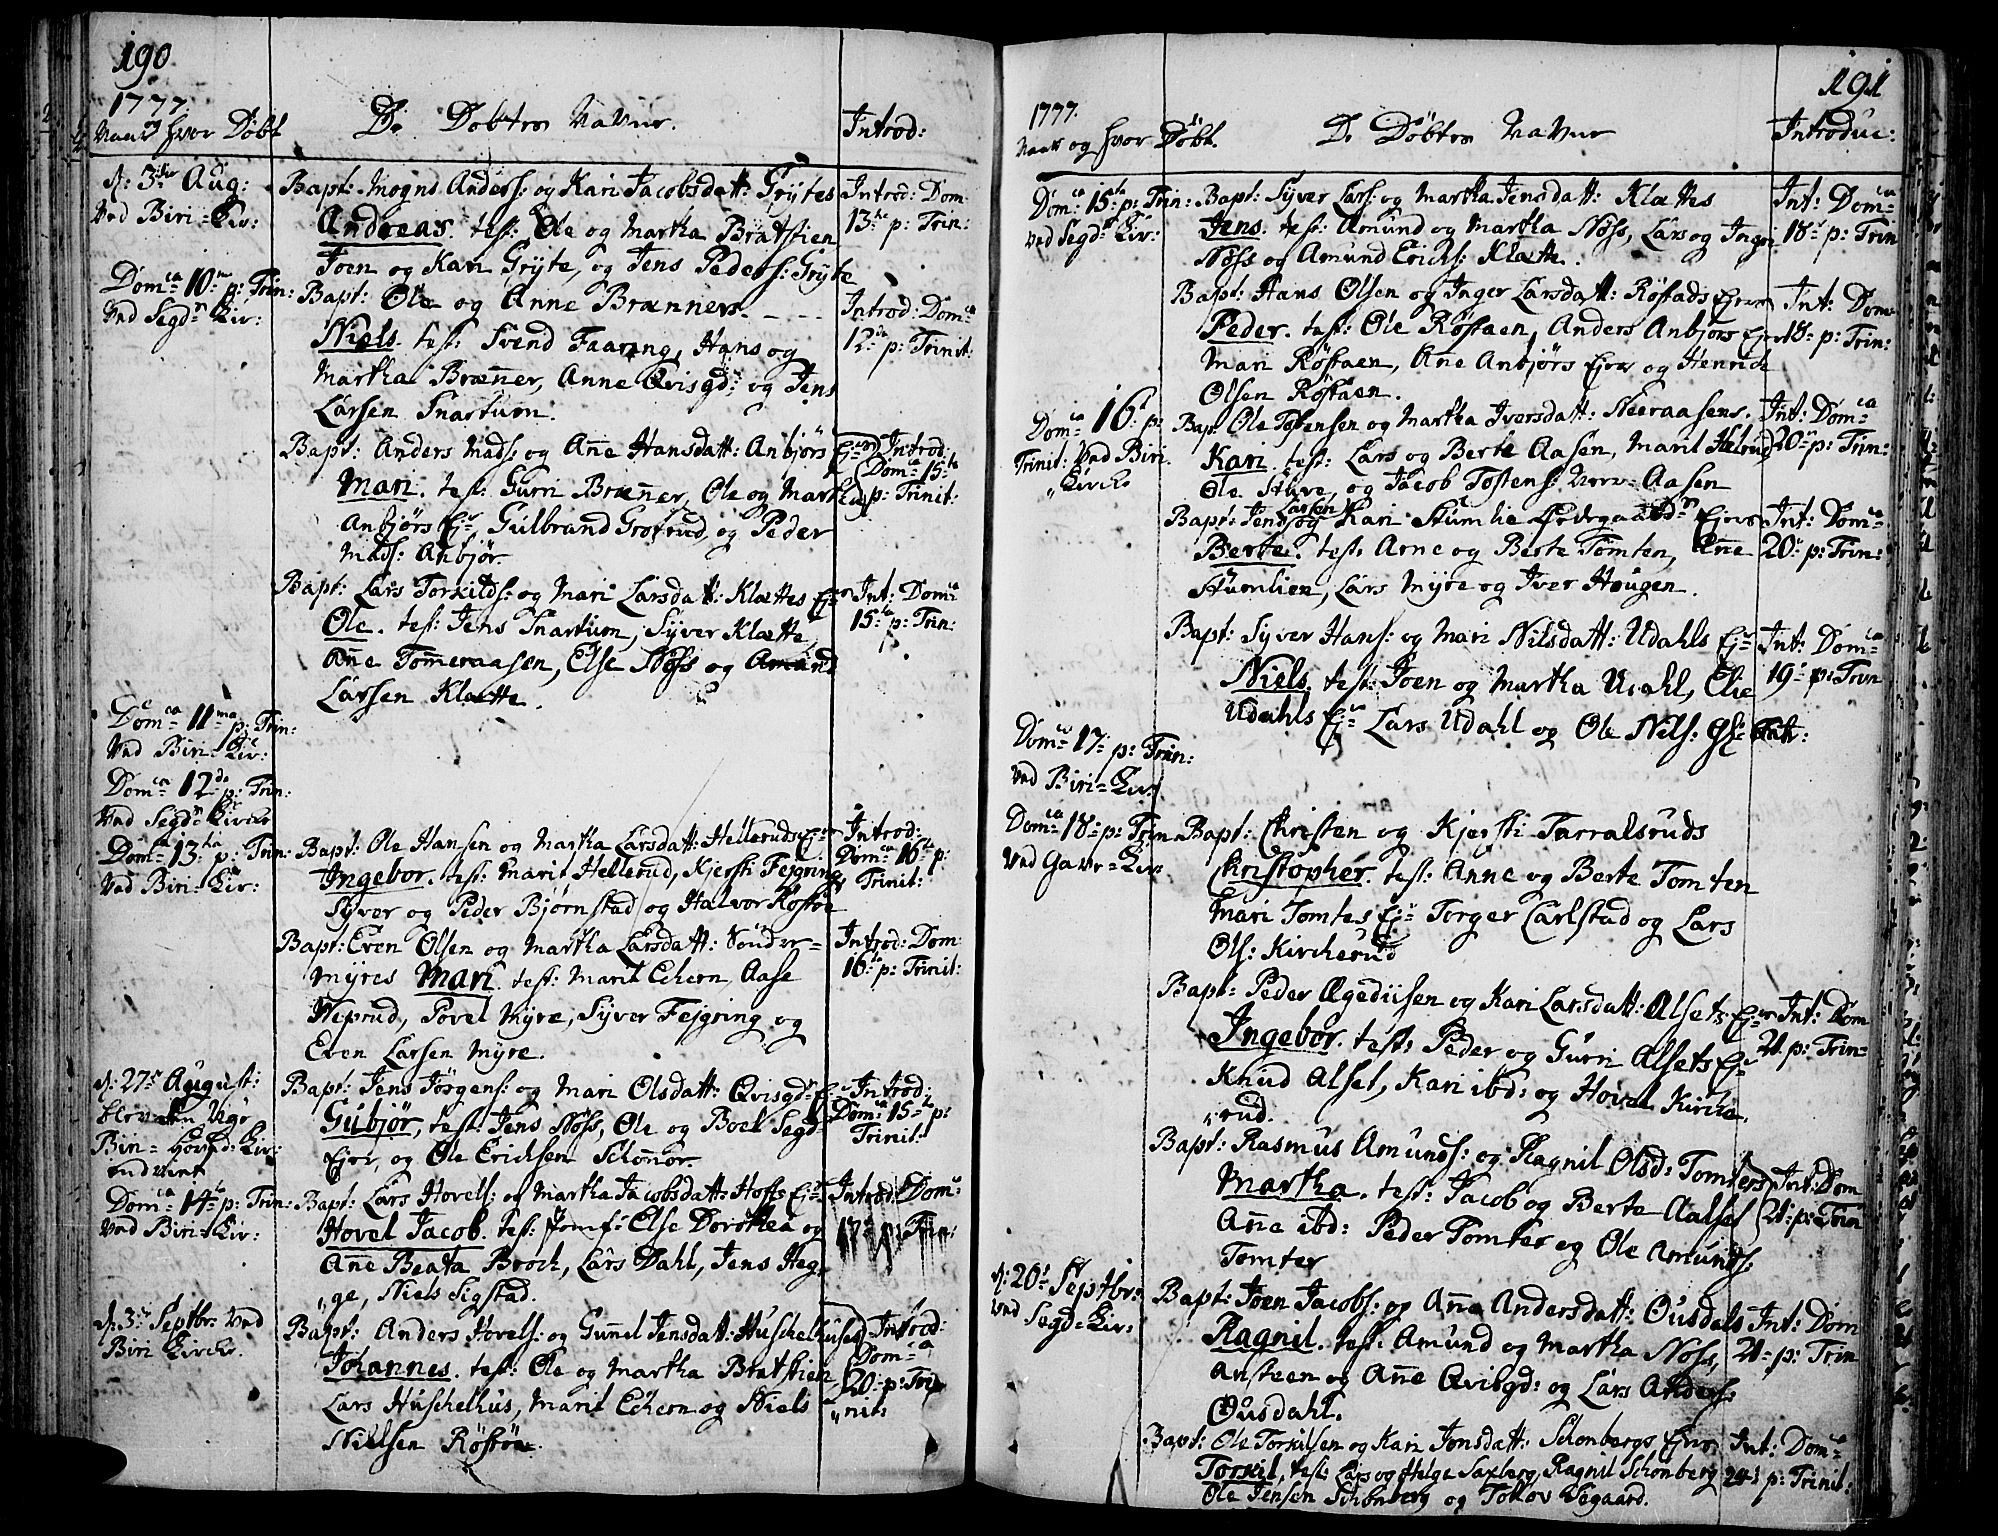 190
1777.
Naar og hvor Döbt
De Döbtes Navne.
Introd:
d: 3die Aug:
Ved Biri=Kir:
Bapt: Mogns Anders: og Kari Jacobsdatt: Grytes
Andreas. test: Ole og Martha Bratstien
Joen og Kari Gryte, og Jens Peders: Gryte
Introd: Dom
13de p: Trin:
Domca 10ma p: Trin:
Ved Segdn Kir:
Bapt: Ole og Anne Brænners
Niels. test: Svend Faaring, Hans og
Martha Bræner, Anne Qvisgd: og Jens
Larsen Snartum.
Introd: Domca
12te p: Trinit:
Bapt: Anders Mads: og Ane Hansdatt: Anbjörs Ejer
Mari. test: Gurri Bræner, Ole og Martha
Anbjörs Ej: Gulbrand Grofrud, og Peder
Mads: Anbjör.
Introd:
Domca 15ta
p: Trinit:
Bapt: Lars Torkilds: og Mari Larsdatt: Klættes Ej:
Ole. test: Jens Snartum, Syver Klætte
Ane Tomeraasen, Else Nöss og Amund
Larsen Klætte.
Int: Domca
15ta p: Trin:
Domca 11ma p: Trin:
Ved Biri=Kir:
Domca 12da p: Trin:
Ved Segd: Kirche
Domca 13tia p: Trin:
Ved Biri=Kir:
Bapt: Ole Hansen og Martha Larsdatt: Helleruds Ejer
Ingebor. test: Marit Hellerud, Kjersti Fejgring
Syver og Peder Bjørnstad og Halvor Röstöe
Introd:
Domca 16ta p:
Trinit:
Bapt: Even Olsen og Martha Larsdatt: Sönder=
myres Mari. test: Marit Echern, Aase
Weprud, Povel Myre, Syver Fejgring og
Even Larsen Myre.
Introd: Dom
16ta p: Trinit:
d: 27de August:
Biri=Hoved=Kir:
indviet
Bapt: Jens Jörgens: og Mari Olsdatt: Qvisgds Ej:
Gubjör, test: Jens Nöss, Ole og Boel Segd=
Ejer, og Ole Ericksen Schonor.
Introd:
Domca 15ta p:
Trinit:
Domca 14ta p: Trin:
Ved Biri=Kir:
Bapt: Lars Hovels: og Martha Jacobsdatt: Hoffs Ejer
Hovel Jacob. test: Jomf: Else Dorothea og
Ane Beata Broch, Lars Dahl, Jens Heg,
„ge, Niels Sigstad.
Introd: Dom:
17de p: Trin:
d: 3de Septbr: Ved
Biri Kirche.
Bapt: Anders Hovels: og Gunel Jensdatt: Huschelhuses
Johannes. test: Ole og Martha Bratstien
Lars Huschelhus, Marit Echern og Niels
Nielsen Röstöe.
Introd:
Domca
20de p: Tri
„nit:
191
1777.
Naar og hvor Döbt.
De Döbtes Navne
Introduc:
Domca 15ta p: Trin:
Ved Segdn Kir:
Bapt: Syver Lars: og Martha Jensdatt: Klættes
Jens. test: Amund og Martha Nöss, Lars og Ingeri
Nöss og Amund Ericks: Klætte.
Int: Domca
18de p: Trin
Bapt: Hans Olsen og Inger Larsdatt: Röstads Ejeres
Peder. test: Ole Röstaen, Anders Anbjörs Ejer
Mari Röstaen, Ane Anbjörs Ejer og Henrich
Olsen Röstaen.
Int: Dom
18de p: Trin:
Domca 16de p:
Trinit: Ved Biri
„Kirche
Bapt: Ole Tostensen og Martha Iversdatt: Neeraasens.
Kari. test: Lars og Berte Aasen, Marit Helrud
Ole Stuve, og Jacob Tostens: Aasen
Int: Domca
20de p: Trin:
Bapt: Jens Larsen og Kari Stumlie Ødegaards Ejeres
Berte. test: Arne og Berte Tomten, Ane
Stumlien, Lars Myre og Iver Hougen.
Int: Domca
20de p: Trin:
Bapt: Syver Hans: og Mari Nilsdatt: Udahls Ejer
Niels. test: Joen og Martha Udahl, Elie
Udahls Ej: Lars Udahl og Ole Nils:
Int: Domca
19de p: Trin
Domca 17de p: Trin:
Ved Biri=Kir:
Domca 18de p: Trin
Ved Gavr=Kir:
Bapt: Christen og Kjersti Tarralsruds
Christopher. test: Anne og Berte Tomten
Mari Tomtes Ej: Torger Carlstad og Lars
Ols: Kircherud
Bapt: Peder Ægediisen og Kari Larsdatt: Alsets Ejer
Ingebor. test: Peder og Gurri Alsets Ejer
Knud Alset, Kari ibd: og Hovel Kirche
„rud.
Int: Dom
21 p: Trin:
Bapt: Rasmus Amunds: og Ragnil Olsd: Tomters
Martha. test: Jacob og Berte Aalset
Ane ibd: Peder Tomter og Ole Amunds.
Tomter
Int: Dom
21 p: Trin
d: 20de Septbr:
Ved Segd=Kir:
Bapt: Joen Jacobs: og Ane Andersdatt: Ousdals
Ragnil. test: Amund og Martha Nöss,
Ansteen og Ane Qvisgd: og Lars Anders:
Ousdahl.
Int: Dom
21 p: Trin
Bapt: Ole Torkilsen og Kari Jonsdatt: Schonbergs Ejer
Torkil, test: Lars og Helge Saxberg, Ragnil Schonberg
Ole Jensen Schonberg og Tollov Degaard.
Int: Domca
24 p: Trinit: